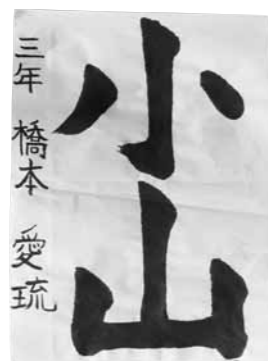 小山
三年 橋本 愛琉